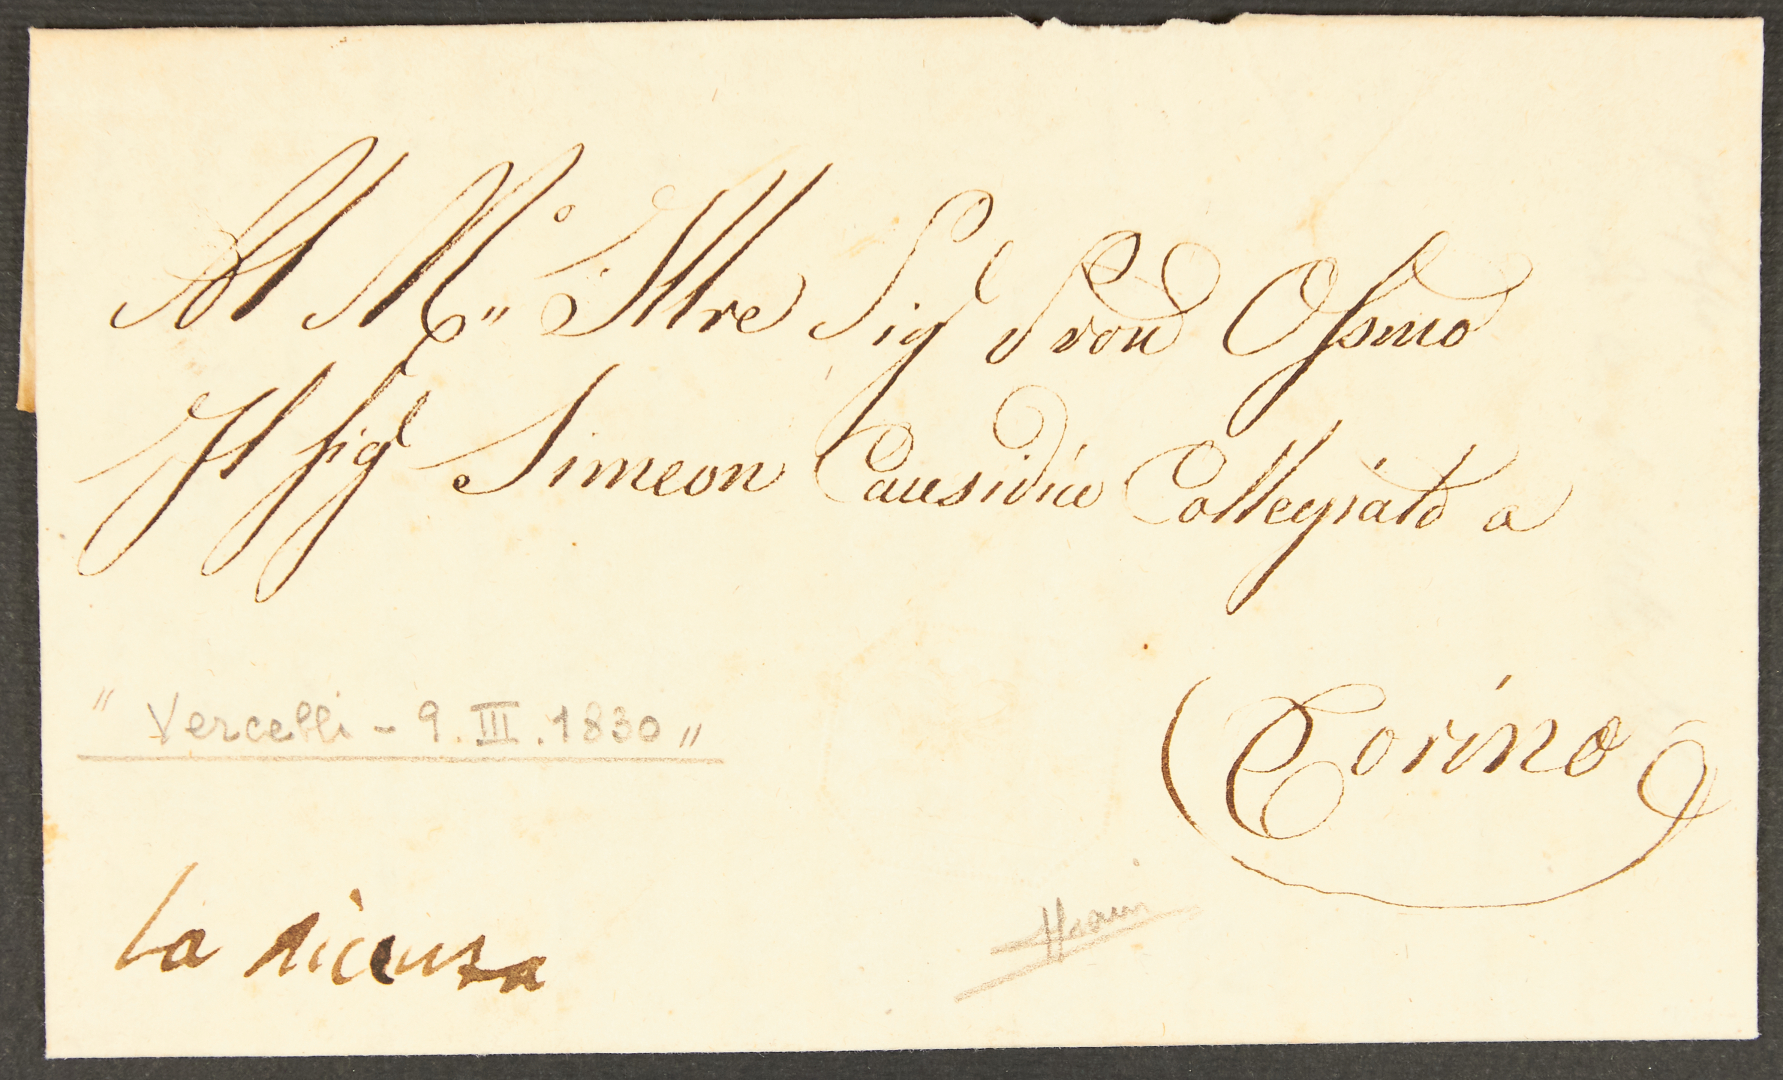 Al M.º Illre Sigʳ Pron Ossmo
Il sigʳ Simeon Causidico Collegiato a
" Vercelli - 9. III. 1830 "
Torino
la ricevuta